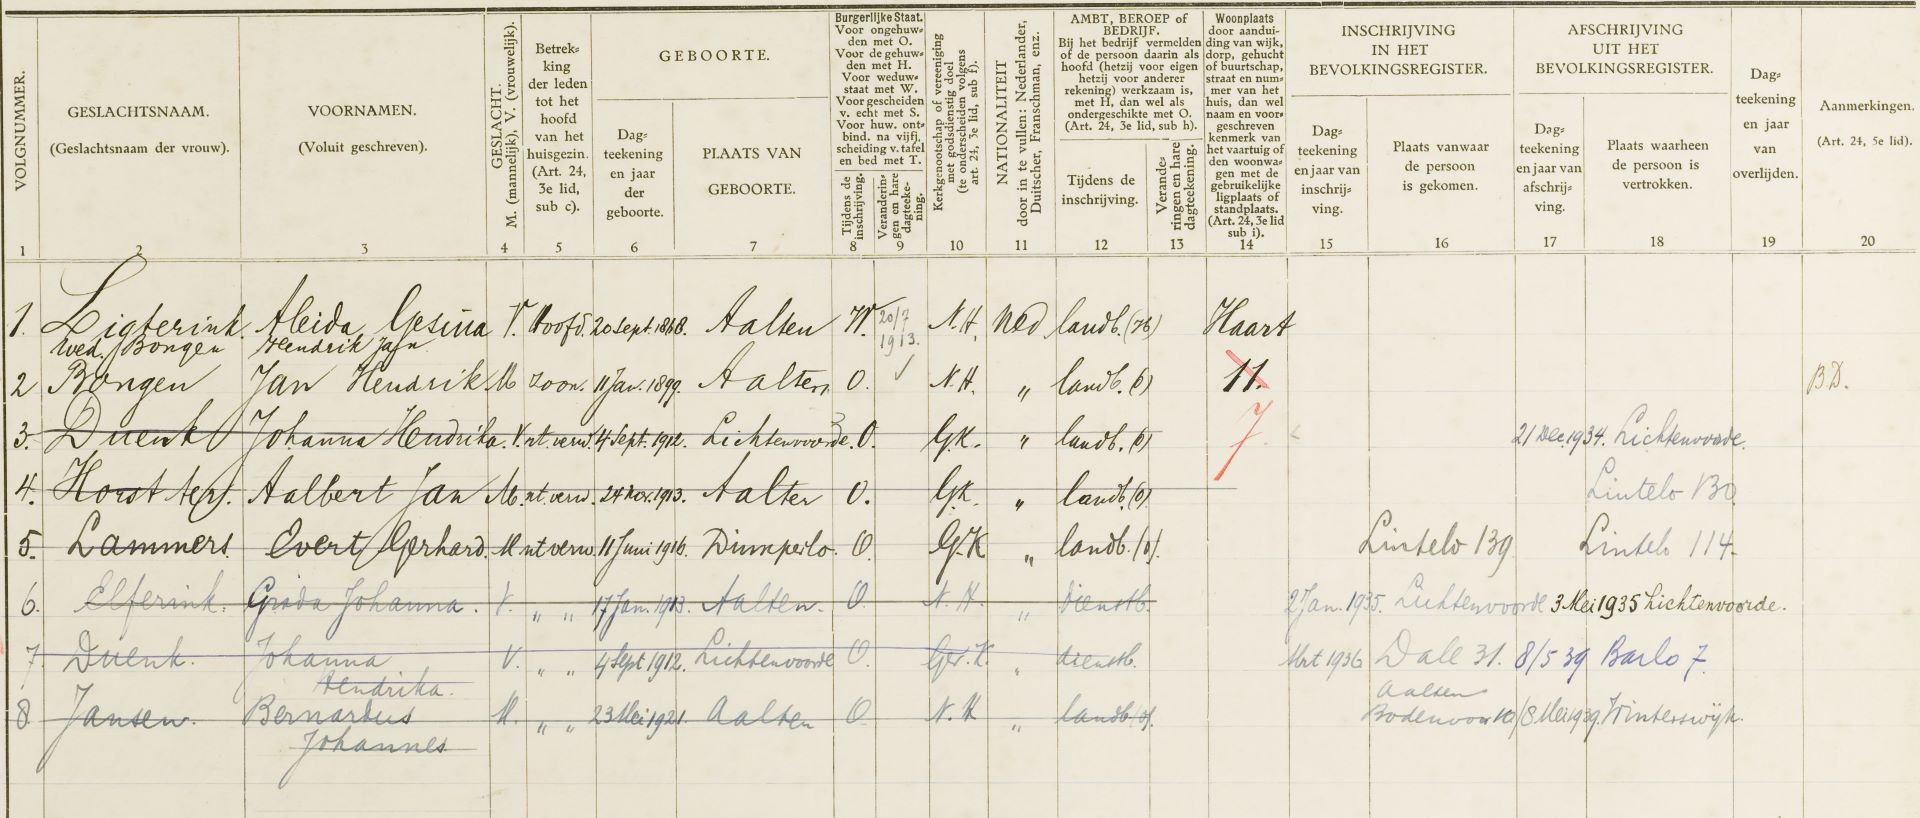 VOLGNUMMER.
1
GESLACHTSNAAM.
(Geslachtsnaam der vrouw).
2
VOORNAMEN.
(Voluit geschreven).
3
GESLACHT.
M. (mannelijk), V. (vrouwelijk).
4
Betrek-
king
der leden
tot het
hoofd
van het
huisgezin.
(Art. 24,
3e lid,
sub c).
5
GEBOORTE.
Dag-
teekening
en jaar
der
geboorte.
6
PLAATS VAN
GEBOORTE.
7
Burgerlijke Staat.
Voor ongehuw-
den met O.
Voor de gehuw-
den met H.
Voor weduw-
staat met W.
Voor gescheiden
v. echt met S.
Voor huw. ont-
bind. na vijfj.
scheiding v. tafel
en bed met T.
Tijdens de
inschrijving.
8
Veranderin-
gen en hare
dagteeke-
ning.
9
Kerkgenootschap of vereeniging
met godsdienstig doel
(te onderscheiden volgens
art. 24, 3e lid, sub f).
10
NATIONALITEIT
door in te vullen: Nederlander,
Duitscher, Franschman, enz.
11
AMBT, BEROEP of
BEDRIJF.
Bij het bedrijf vermelden
of de persoon daarin als
hoofd (hetzij voor eigen
hetzij voor anderer
rekening) werkzaam is,
met H, dan wel als
ondergeschikte met O.
(Art. 24, 3e lid, sub h).
Tijdens de
inschrijving.
12
Verande-
ringen en hare
dagteekening.
13
Woonplaats
door aandui-
ding van wijk,
dorp, gehucht
of buurtschap,
straat en num-
mer van het
huis, dan wel
naam en voor-
geschreven
kenmerk van
het vaartuig of
den woonwa-
gen met de
gebruikelijke
ligplaats of
standplaats.
(Art. 24, 3e lid
sub i).
14
INSCHRIJVING
IN HET
BEVOLKINGSREGISTER.
Dag-
teekening
en jaar van
inschrij-
ving.
15
Plaats vanwaar
de persoon
is gekomen.
16
AFSCHRIJVING
UIT HET
BEVOLKINGSREGISTER.
Dag-
teekening
en jaar van
afschrij-
ving.
17
Plaats waarheen
de persoon is
vertrokken.
18
Dag-
teekening
en jaar
van
overlijden.
19
Aanmerkingen.
(Art. 24, 5e lid).
20
1. Ligterink. Aleida Gesina V. Hoofd. 20 Sept. 1868. Aalten W. 20/7 1913. N.H. Ned landb. (H) Haart
wed. Bongen Hendrik Jan
2 Bongen Jan Hendrik M zoon. 11 Jan. 1899. Aalten O. N.H. " landb. (o) 11. B.D.
3. Duenk Johanna Hendrika. V. nt. verw. 4 Sept. 1912. Lichtenvoorde. O. G.K. " landb. (o) 7. 21 Dec. 1934. Lichtenvoorde.
4. Horst ter. Aalbert Jan M. nt. verw. 24 Nov. 1913. Aalten O. G.K. " landb. (o) Lintelo 130
5. Lammers. Evert Gerhard. M nt verw. 11 Juni 1916. Dinxperlo. O. G.K " landb. (o). Lintelo 139 Lintelo 114.
6. Elferink. Grada Johanna. V. " " 17 Jan. 1913. Aalten. O. N.H. " dienstb. 2 Jan. 1935. Lichtenvoorde 3 Mei 1935 Lichtenvoorde.
7. Duenk. Johanna V. " " 4 Sept 1912. Lichtenvoorde O. Ger. K. " dienstb. Mrt 1936 Dale 31. 8/5 39 Barlo 7.
Hendrika.
Aalten
8 Jansen. Bernardus M. " " 23 Mei 1921. Aalten O N.H " landb. (o). 8 Mei 1939. Winterswijk.
Johannes